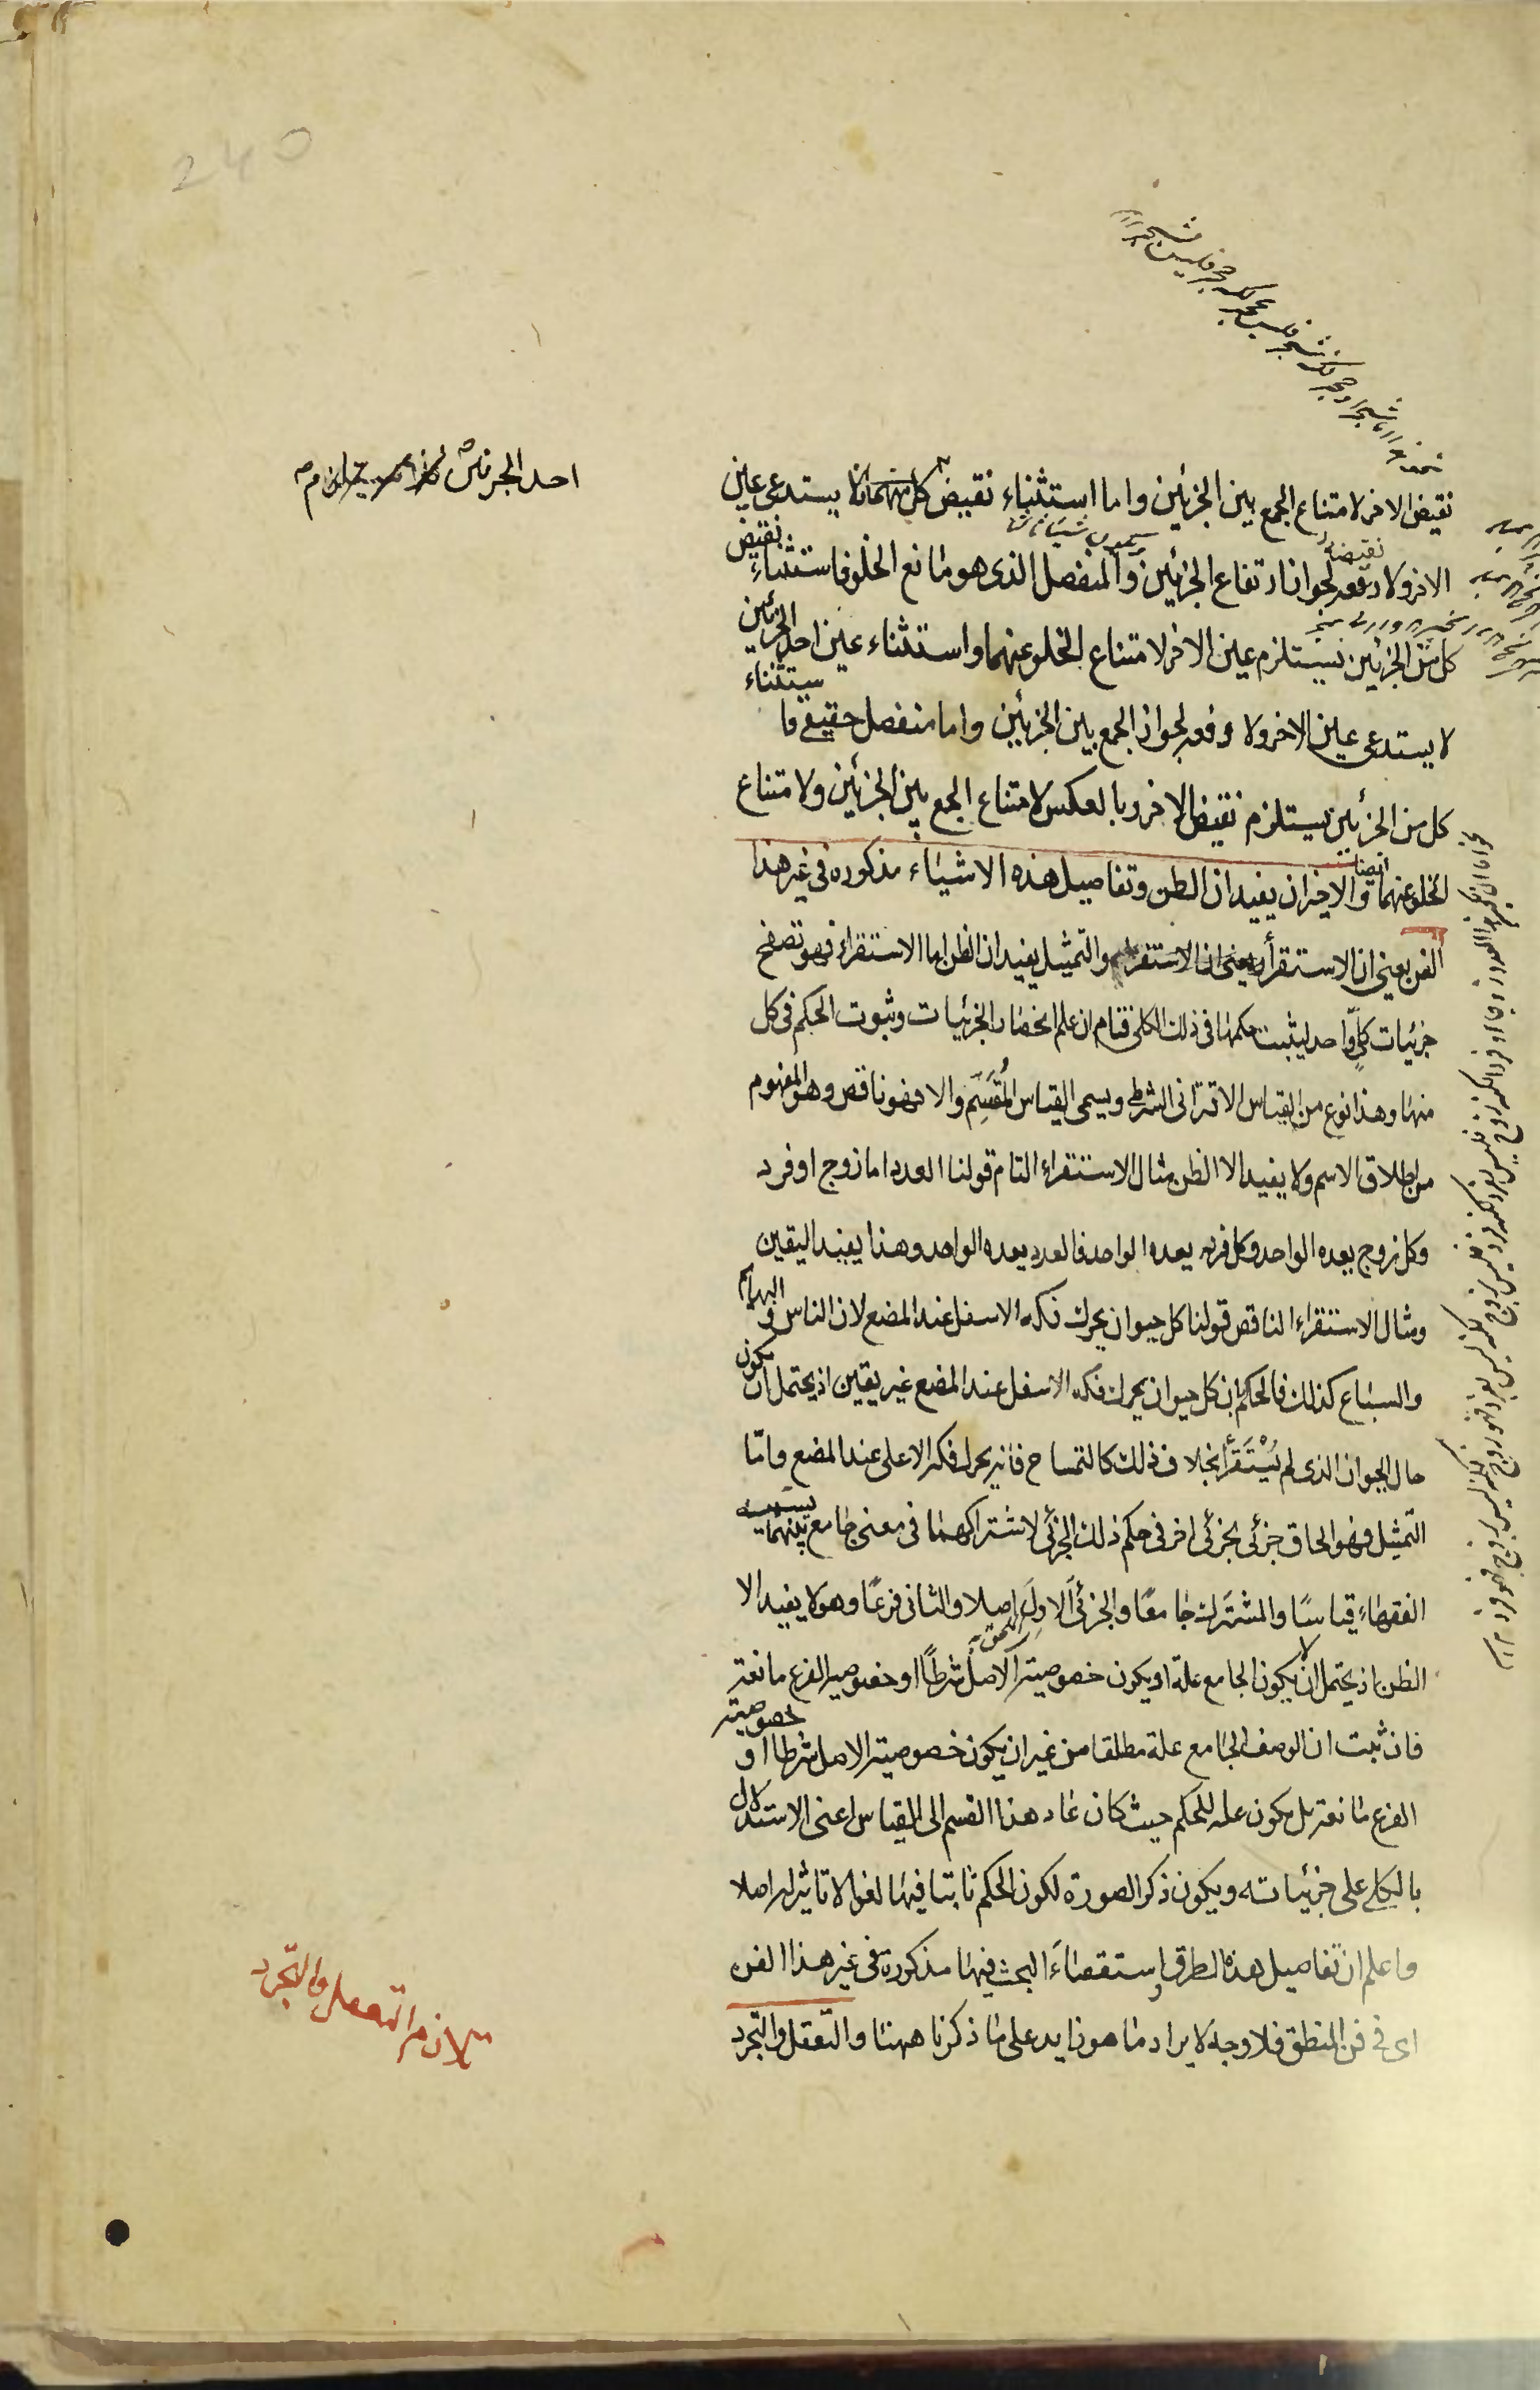 نقيض الاخر لامتناع الجمع بين الجزئين واما استثناء نقيض كل منهما فلا يستدعى عين
الاخر ولا رفعه لجواز ارتفاع الجزئين والمنفصل الذى هو مانع الخلو فاستثناء نقيض
كل من الجزئين يستلزم عين الاخر لامتناع الخلو عنهما واستثناء عين احد الجزئين
لا يستدعى عين الاخر ولا رفعه لجواز الجمع بين الجزئين واما منفصل حقيقى فاستثناء
كل من الجزئين يستلزم نقيض الاخر وبالعكس لامتناع الجمع بين الجزئين ولامتناع
الخلو عنهما ايضا والاخيران يفيدان الظن وتفاصيل هذه الاشياء مذكوره فى غير هذا
الفن يعنى ان الاستقراء والتمثيل يفيدان الظن اما الاستقراء فهو تصفح
جزئيات كلى واحد ليثبت حكمها فى ذلك الكلى فتام ان علم انحصار الجزئيات وثبوت الحكم فى كل
منها وهذا نوع من القياس الاقترانى الشرطى ويسمى القياس المُقَسِّم والا فهو ناقص وهو المفهوم
من اطلاق الاسم ولا يفيد الا الظن مثال الاستقراء التام قولنا العدد اما زوج او فرد
وكل زوج يعده الواحد وكل فرد يعده الواحد فالعدد يعده الواحد وهذا يفيد اليقين
ومثال الاستقراء الناقص قولنا كل حيوان يحرك فكه الاسفل عند المضع لان الناس و البهايم
والسباع كذلك فالحكم بان كل حيوان يحرك فكه الاسفل عند المضع غير يقين اذ يحتمل ان يكون
حال الحيوان الذى لم يُسْتَقْرَأ بخلاف ذلك كالتمساح فانه يحرك فكه الاعلى عند المضع وامّا
التمثيل فهو الحاق جزئى بجزئى اخر فى حكم ذلك الجزئى لاشتراكهما فى معنى جامع بينهما يسميه
الفقهاء قياسًا والمشترك جامعًا والجزئى الاول اصلا والثانى فرعًا وهو لا يفيد الا
الظن اذ يحتمل ان لا يكون الجامع علة او يكون خصوصية الاصل شرطًا او خصوصية الفرع مانعة
فان ثبت ان الوصف الجامع علة مطلقا من غير ان يكون خصوصية الاصل شرطا او خصوصية
الفرع مانعة بل يكون علة للحكم حيث كان عاد هذا القسم الى القياس اعنى الاستدلال
بالكلى على جزئياته ويكون ذكر الصورة لكون الحكم ثابتا فيها لغوا لا تاثير له اصلا
واعلم ان تفاصيل هذه الطرق واستقصاء البحث فيها مذكورة فى غير هذا الفن
اى فى فن المنطق فلا وجه لايراد ما هو زايد على ما ذكرنا ههنا والتعقل والتجرد
تلازم التعقل والتجرد
240